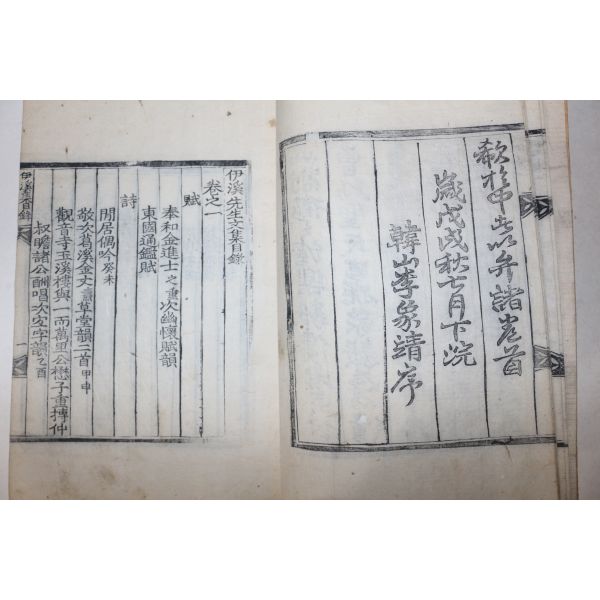 歎於中者以弁諸卷首
歲戊戌秋七月下浣
韓山李象靖序
伊溪先生文集目錄
卷之一
賦
奉和金進士之重次幽懷賦韻
東國通鑑賦
詩
閒居偶吟癸未
敬次葛溪金丈草堂韻二首甲申
觀音寺玉溪樓與一而萬里公懋子重摶仲
叔瞻諸公酬唱次宏字韻乙酉
伊溪目錄
一